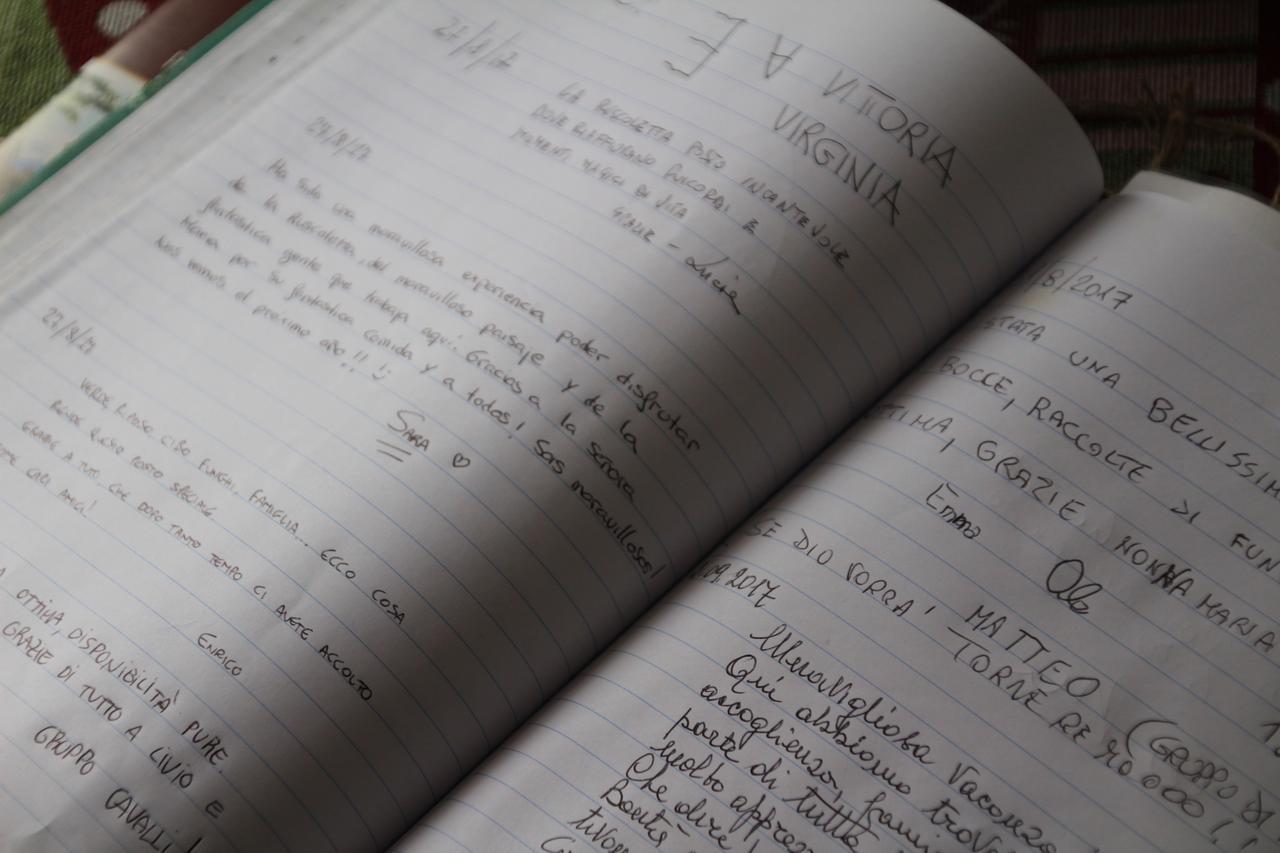 A VITTORIA
E VIRGINIA
27/8/17
LA POSTO INCANTEVOLE
DOVE RICORDI E
MOMENTI MAGICI DI VITA
GRAZIE - Lucia
27/8/17
Ha sido una maravillosa experiencia poder disfrutar
de la , del maravilloso paisaje y de la
fantastica gente que trabaja aquí. Gracias a la señora
Maria por su fantastica comida y a todos! Sois maravillosos!
Nos vemos el próximo año!! :)
SARA ♡
27/8/17
VERDE, RIPOSO, CIBO, FUNGHI, FAMIGLIA... ECCO COSA
RENDE QUESTO POSTO SPECIALE
GRAZIE A TUTTI CHE DOPO TANTO TEMPO CI AVETE ACCOLTO
COME CARI AMICI!
ENRICO
OTTIMA, DISPONIBILITA' PURE.
GRAZIE DI TUTTO A LIVIO E
GRUPPO
CAVALLI!
/8/2017
STATA UNA BELLISSIM
BOCCE, RACCOLTE DI FUN
STIMA, GRAZIE NONNA MARIA
Emma
SE DIO VORRA' TORNEREMOOOO!!
MATTEO (GRUPPO DI
.09.2017
Meravigliosa Vacanza
Qui abbiamo trova
accoglienza, fami
parte di tutta
Molto appre
Che dire!